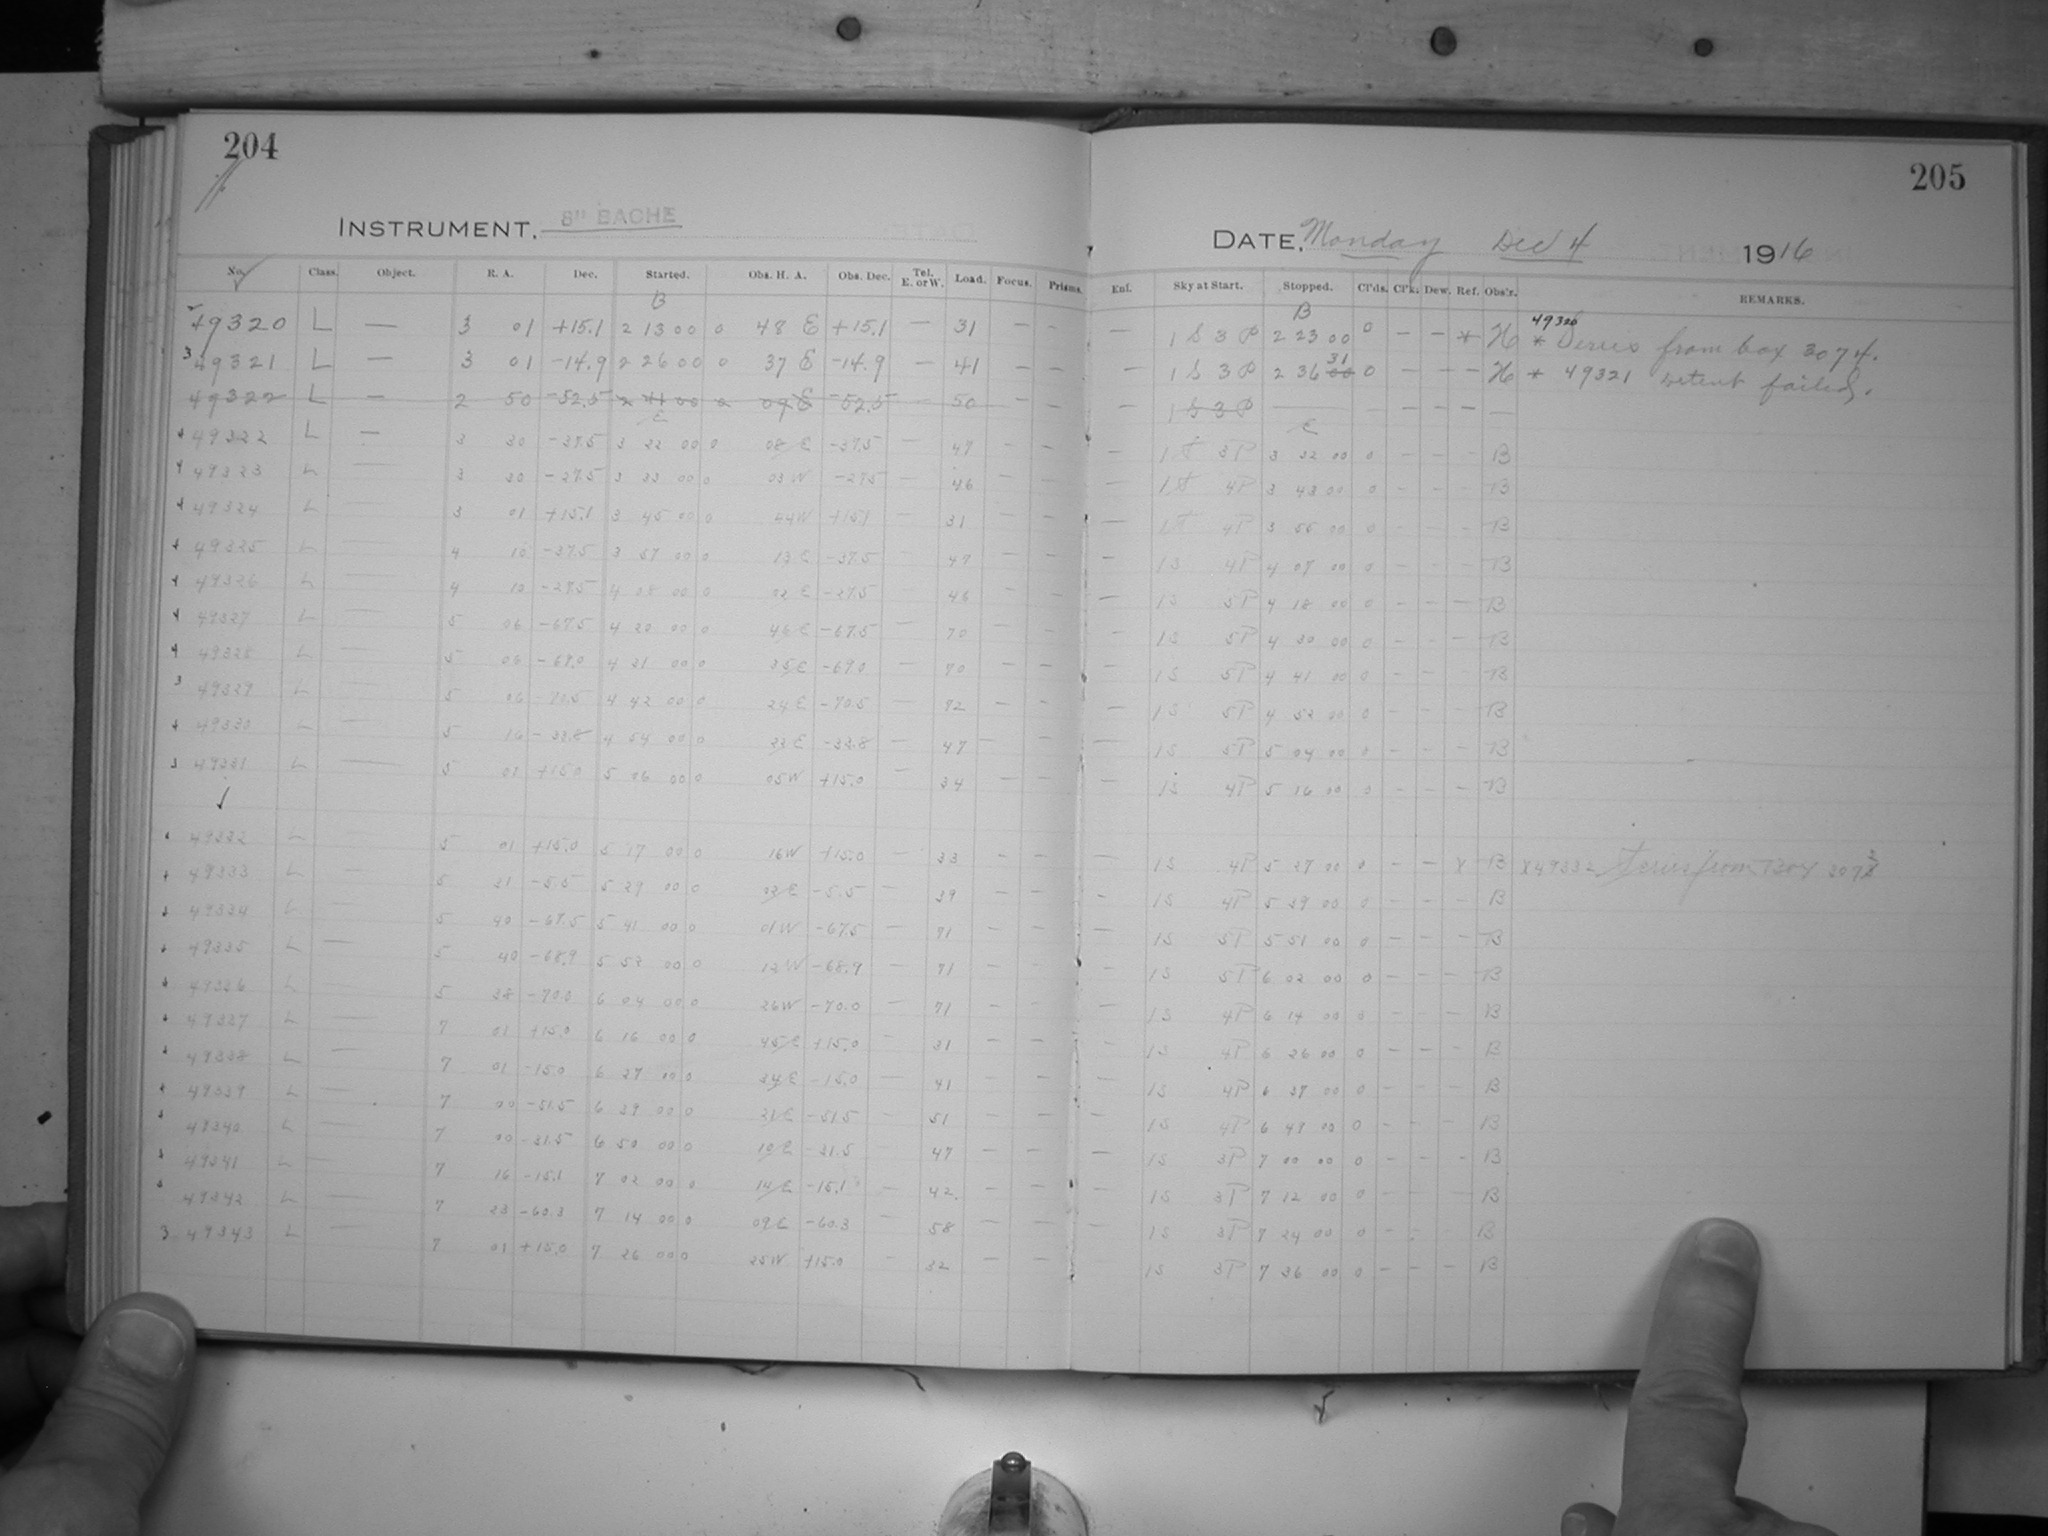 204
INSTRUMENT. 8" BACHE
No. Class. Object. R. A. Dec. Started. Obs. H. A. Obs. Dec. Tel. E. or W. Load. Focus. Prisms.
B
49320 L — 3 01 +15.1 2 13 00 0 48 E +15.1 — 31 – –
3 49321 L — 3 01 -14.9 2 26 00 0 37 E -14.9 — 41 – –
49322 L — 2 50 -52.5 2 41 00 0 09 E -52.5 — 50 – –
E
49322 L — 3 20 -37.5 3 22 00 0 08 E -37.5 — 47 – –
49323 L — 3 20 -27.5 3 33 00 0 03 W -27.5 — 46 – –
49324 L — 3 01 +15.1 3 45 00 0 44 W +15.1 — 31 – –
49325 L — 4 10 -37.5 3 57 00 0 13 E -37.5 — 47 – –
49326 L — 4 10 -27.5 4 08 00 0 02 E -27.5 — 46 – –
49327 L — 5 06 -67.5 4 20 00 0 46 E -67.5 — 70 – –
49328 L — 5 06 -69.0 4 31 00 0 35 E -69.0 — 70 – –
3 49329 L — 5 06 -70.5 4 42 00 0 24 E -70.5 — 72 – –
49330 L — 5 16 -32.8 4 54 00 0 22 E -32.8 — 47 – –
49331 L — 5 01 +15.0 5 06 00 0 05 W +15.0 — 34 – –
49332 L — 5 01 +15.0 5 17 00 0 16 W +15.0 — 33 – –
49333 L — 5 31 -5.5 5 29 00 0 02 E -5.5 — 39 – –
49334 L — 5 40 -67.5 5 41 00 0 01 W -67.5 — 71 – –
49335 L — 5 40 -68.9 5 52 00 0 12 W -68.9 — 71 – –
49336 L — 5 38 -70.0 6 04 00 0 26 W -70.0 — 71 – –
49337 L — 7 01 +15.0 6 16 00 0 45 E +15.0 — 31 – –
49338 L — 7 01 -15.0 6 27 00 0 34 E -15.0 — 41 – –
49339 L — 7 00 -51.5 6 39 00 0 21 E -51.5 — 51 – –
49340 L — 7 00 -31.5 6 50 00 0 10 E -31.5 — 47 – –
49341 L — 7 16 -15.1 7 02 00 0 14 E -15.1 — 42 – –
49342 L — 7 23 -60.3 7 14 00 0 09 E -60.3 — 58 – –
3 49343 L — 7 01 +15.0 7 26 00 0 25 W +15.0 — 32 – –
205
DATE, Monday Dec 4 1916
Enl. Sky at Start. Stopped. Cl'ds. Cl'k. Dew. Ref. Obs'r. REMARKS.
B
— 1 S 3 P 2 23 00 0 – – * H 49320 * Series from box 3074.
— 1 S 3 P 2 36 00 31 0 – – – H * 49321 Detent failed.
— 1 S 3 P — – – – —
E
— 1 S 3P 3 32 00 0 – – – B
— 1 S 4P 3 43 00 0 – – – B
— 1 S 4P 3 55 00 0 – – – B
— 1 S 4P 4 07 00 0 – – – B
— 1 S 5P 4 18 00 0 – – – B
— 1 S 5P 4 30 00 0 – – – B
— 1 S 5P 4 41 00 0 – – – B
— 1 S 5P 4 52 00 0 – – – B
— 1 S 5P 5 04 00 0 – – – B
— 1 S 4P 5 16 00 0 – – – B
— 1 S 4P 5 27 00 0 – – X B X 49332 Series from Box 3073
— 1 S 4P 5 39 00 0 – – – B
— 1 S 5P 5 51 00 0 – – – B
— 1 S 5P 6 02 00 0 – – – B
— 1 S 4P 6 14 00 0 – – – B
— 1 S 4P 6 26 00 0 – – – B
— 1 S 4P 6 37 00 0 – – – B
— 1 S 4P 6 49 00 0 – – – B
— 1 S 3P 7 00 00 0 – – – B
— 1 S 3P 7 12 00 0 – – – B
— 1 S 3P 7 24 00 0 – – – B
— 1 S 3P 7 36 00 0 – – – B